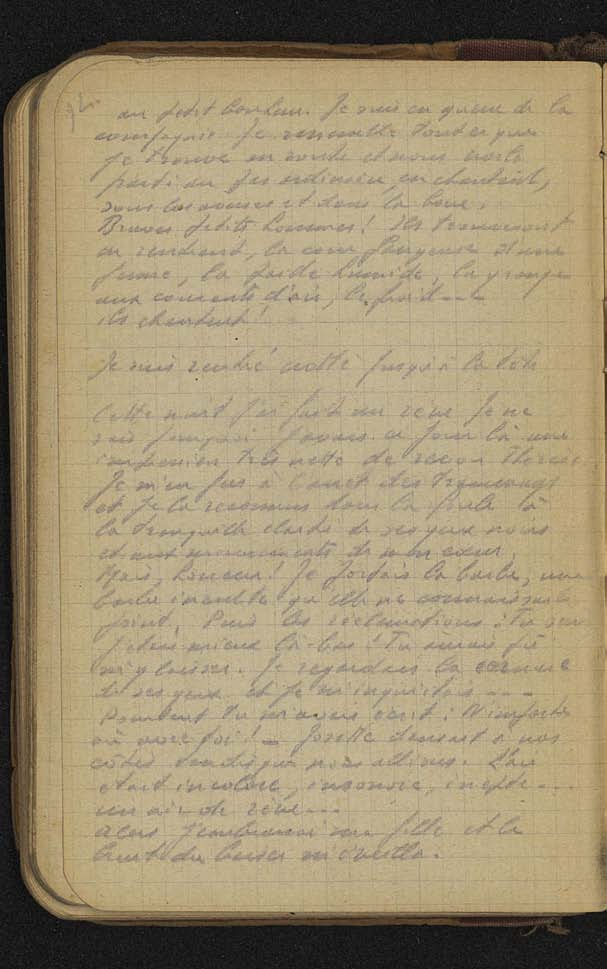 92.
au petit bonheur. Je suis en queue de la
compagnie. Je rencontre tout ce que
je trouve en route et nous voilà
parti au pas ordinaire, en chantant,
sous les averses et dans la boue.
Braves petits hommes! Ils trouveront
en rentrant, la cour fangeuse d'une
ferme, la paille humide, la grange
aux courants d'air, le froid....
ils chantent!
Je suis rentré crotté jusqu'à la tête
Cette nuit j'ai fait un rêve. Je ne
sais pourquoi j'avais ce jour là une
impression très nette de revoir Thérèse
Je m'en fus à l'arrêt des tramways
et je la reconnus dans la foule à
la tranquille clarté de ses yeux noirs
et aux mouvements de mon cœur.
Mais, horreur! Je portais la barbe, une
barbe inculte qu'elle ne connaissait
point. Puis les réclamations: Tu
j'étais mieux là-bas! Tu aurais dû
m'y laisser. Je regardais la
de ses yeux et je m'inquiétais ...
Pourtant tu m'avais écrit: N'importe
où avec toi! — Josette dansait à nos
côtés tandis que nous allions. L'air
était incolore, insonore, inepte...
un air de rêve...
Alors j'embrassai ma fille et le
bruit du baiser m'éveilla.